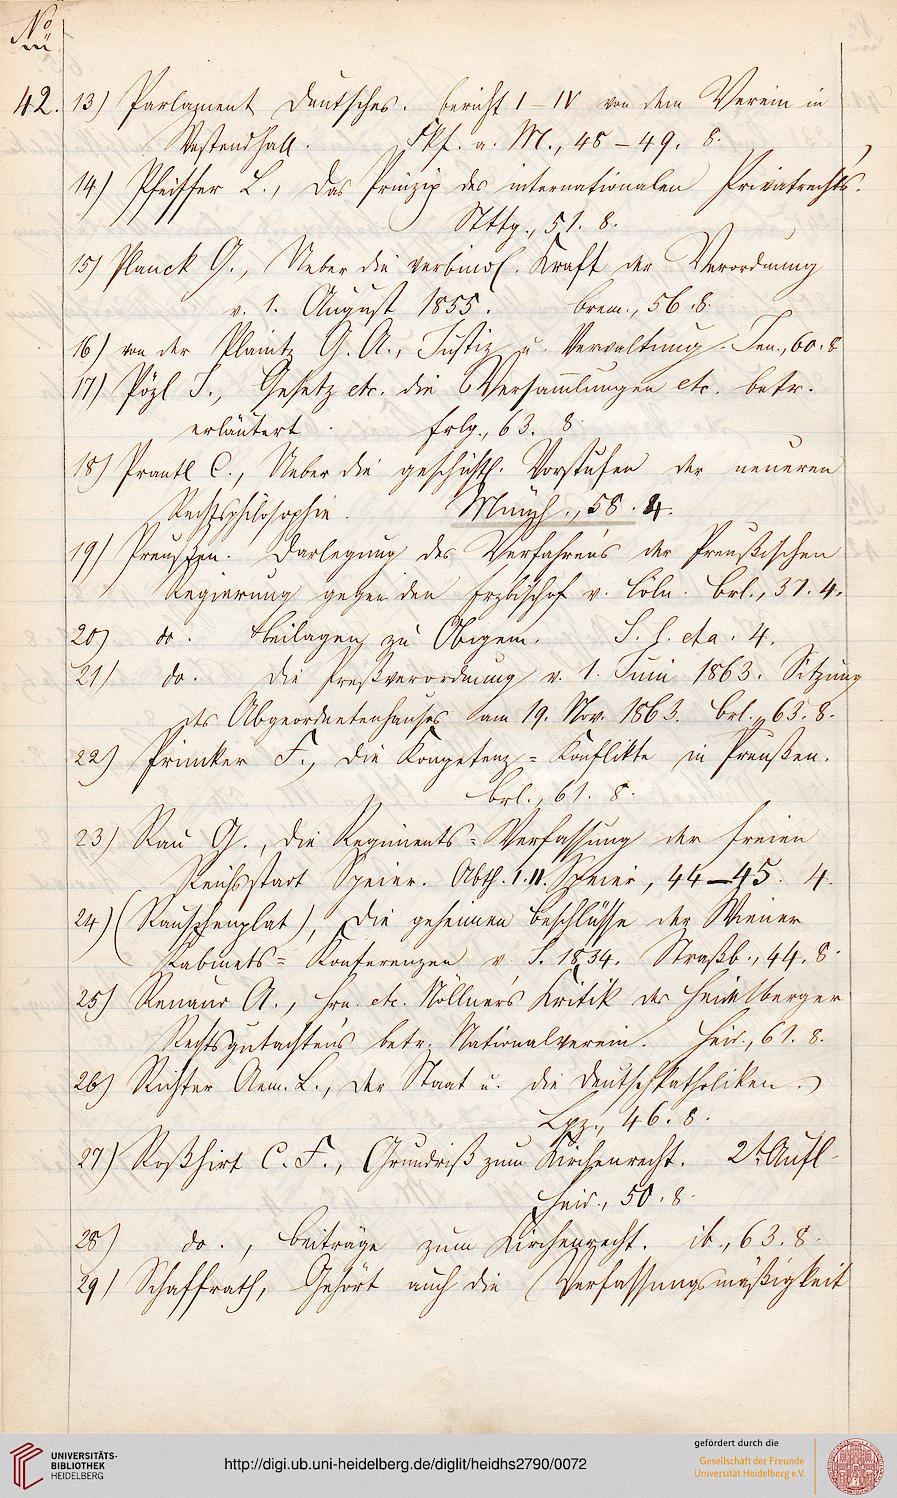 No
42. 13) Parlament deutsches. Bericht I–IV von dem Verein in
Westendhall. Fkf. a. M., 48–49. 8.
14) Pfeiffer L., Das Prinzip des internationalen Privatrechts.
Sttg., 51. 8.
15) Planck G., Ueber die verbindl. Kraft der Verordnung
v. 1. August 1855. Brem., 56. 8.
16) von der Planitz G. A., Justiz u. Verwaltung. Jen., 60. 8
17) Pözl J., Gesetz etc. die Versammlungen etc. betr.
erläutert. Erlg., 63. 8
18) Prantl C., Ueber die geschichtl. Vorstufen der neueren
Rechtsphilosophie. Münch., 58. 4.
19) Preussen. Darlegung des Verfahrens der Preußischen
Regierung gegen den Erzbischof v. Cöln. Brl., 37. 4.
20) do. Beilagen zu Obigem. S. l. et a. 4.
21) do. Die Preßverordnung v. 1. Juni 1863. Sitzung
des Abgeordnetenhauses am 19. Nov. 1863. Brl., 63. 8.
22) Primker F., Die Kompetenz-Konflikte in Preußen.
Brl., 61. 8.
23) Rau G., Die Regiments-Verfassung der freien
Reichsstadt Speier. Abth. I. II. Speier, 44–45. 4.
24) (Rauschenplat), Die geheimen Beschlüsse der Wiener
Kabinets-Konferenzen v. J. 1834. Straßb., 44. 8.
25) Renaud A., Hrn. etc. Nöllner's Kritik des Heidelberger
Rechtsgutachtens betr. Nationalverein. Heid., 61. 8.
26) Richter Aem. L., Der Staat u. die Deutschkatholiken.
Lpz., 46. 8.
27) Roßhirt C. F., Grundriß zum Kirchenrecht. 2t. Aufl.
Heid., 50. 8.
28) do., Beiträge zum Kirchenrecht. ib., 63. 8.
29) Schaffrath, Gehört auch die Verfassungsmäßigkeit
UNIVERSITÄTS-
BIBLIOTHEK
HEIDELBERG
http://digi.ub.uni-heidelberg.de/diglit/heidhs2790/0072
gefördert durch die
Gesellschaft der Freunde
Universität Heidelberg e.V.